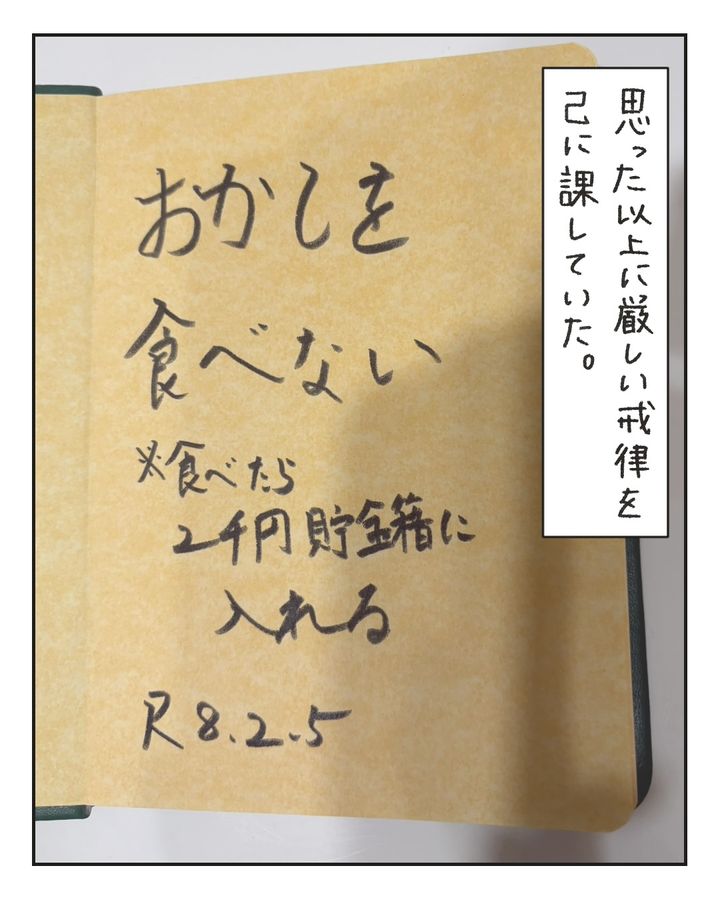 思った以上に厳しい戒律を
己に課していた。
おかしを
食べない
※食べたら
2千円貯金箱に
入れる
R8.2.5